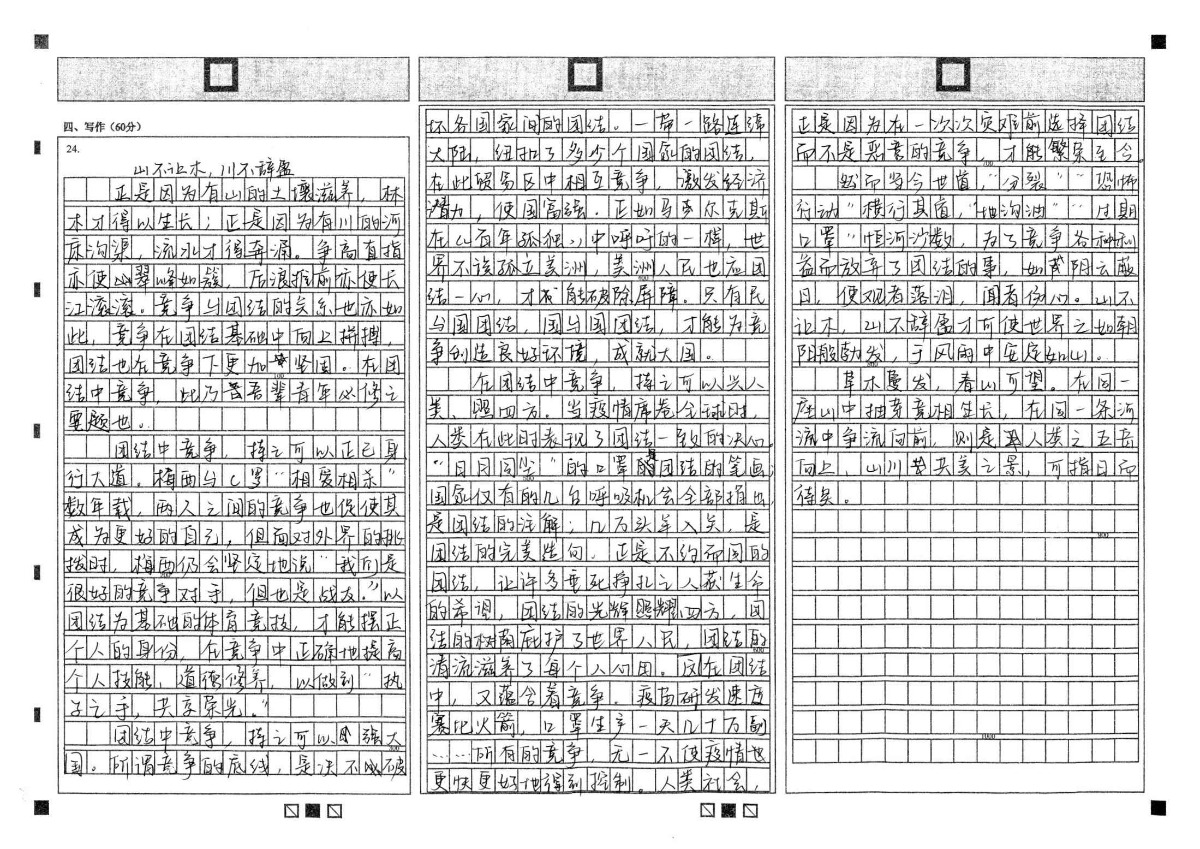 四、写作（60分）
24.
山不让木，川不辞盈
正是因为有山的土壤滋养，林
木才得以生长；正是因为有川的河
床沟渠，流水才得奔涌。争高直指
亦使山翠峰如簇，后浪推前亦使长
江滚滚。竞争与团结的关系也亦如
此，竞争在团结基础中向上拼搏，
团结也在竞争下更加坚固。在团
100
结中竞争，此乃吾辈青年必修之
要题也。
团结中竞争，择之可以正己身
行大道。梅西与C罗“相爱相杀”
数年载，两人之间的竞争也促使其
成为更好的自己，但面对外界的挑
拨时，梅西仍会坚定地说“我们是
200
很好的竞争对手，但也是战友。”以
团结为基础的体育竞技，才能摆正
个人的身份，在竞争中正确地提高
个人技能，道德修养，以做到“执
子之手，共享荣光。”
团结中竞争，择之可以强大
300
国。所谓竞争的底线，是决不破
坏各国家间的团结。一带一路连绵
大陆，纽扣了多少个国家的团结，
在此贸易区中相互竞争，激发经济
潜力，使国富强。正如马尔克斯
在《百年孤独》中呼吁的一样，世
界不该孤立美洲，美洲人民也应团
结一心，才能破除屏障。只有民
与国团结，国与国团结，才能为竞
争创造良好环境，成就大国。
在团结中竞争，择之可以兴人
类、照四方。当疫情席卷全球时，
人类在此时表现了团结一致的决心。
“日月同尘”的口罩是团结的笔画；
国家仅有的几台呼吸机会全部指出，
是团结的注解；几万头羊入关，是
团结的完美造句。正是不约而同的
团结，让许多垂死挣扎之人获生命
的希望，团结的光辉照耀四方，团
结的树荫庇护了世界人民，团结的
600
清流滋养了每个人心田。因在团结
中，又蕴含着竞争。疫苗研发速度
赛比火箭，口罩生产一天几十万副
……所有的竞争，无一不使疫情也
更快更好地得到控制。人类社会，
正是因为在一次次灾难前选择团结
而不是恶意的竞争，才能繁荣至今。
700
然而当今世道，“分裂”“恐怖
行动”横行其道，“地沟油”“过期
口罩”恒河沙数，为了竞争各种利
益而放弃了团结的事，如阴云蔽
日，使观者落泪，闻者伤心。山不
让木，川不辞盈才可使世界之如朝
阳般勃发，于风雨中安定如山。
800
草木蔓发，春山可望。在同一
座山中抽芽竞相生长，在同一条河
流中争流向前，则是人类之五岳
向上，山川共美之景，可指日而
待矣。
900
1000